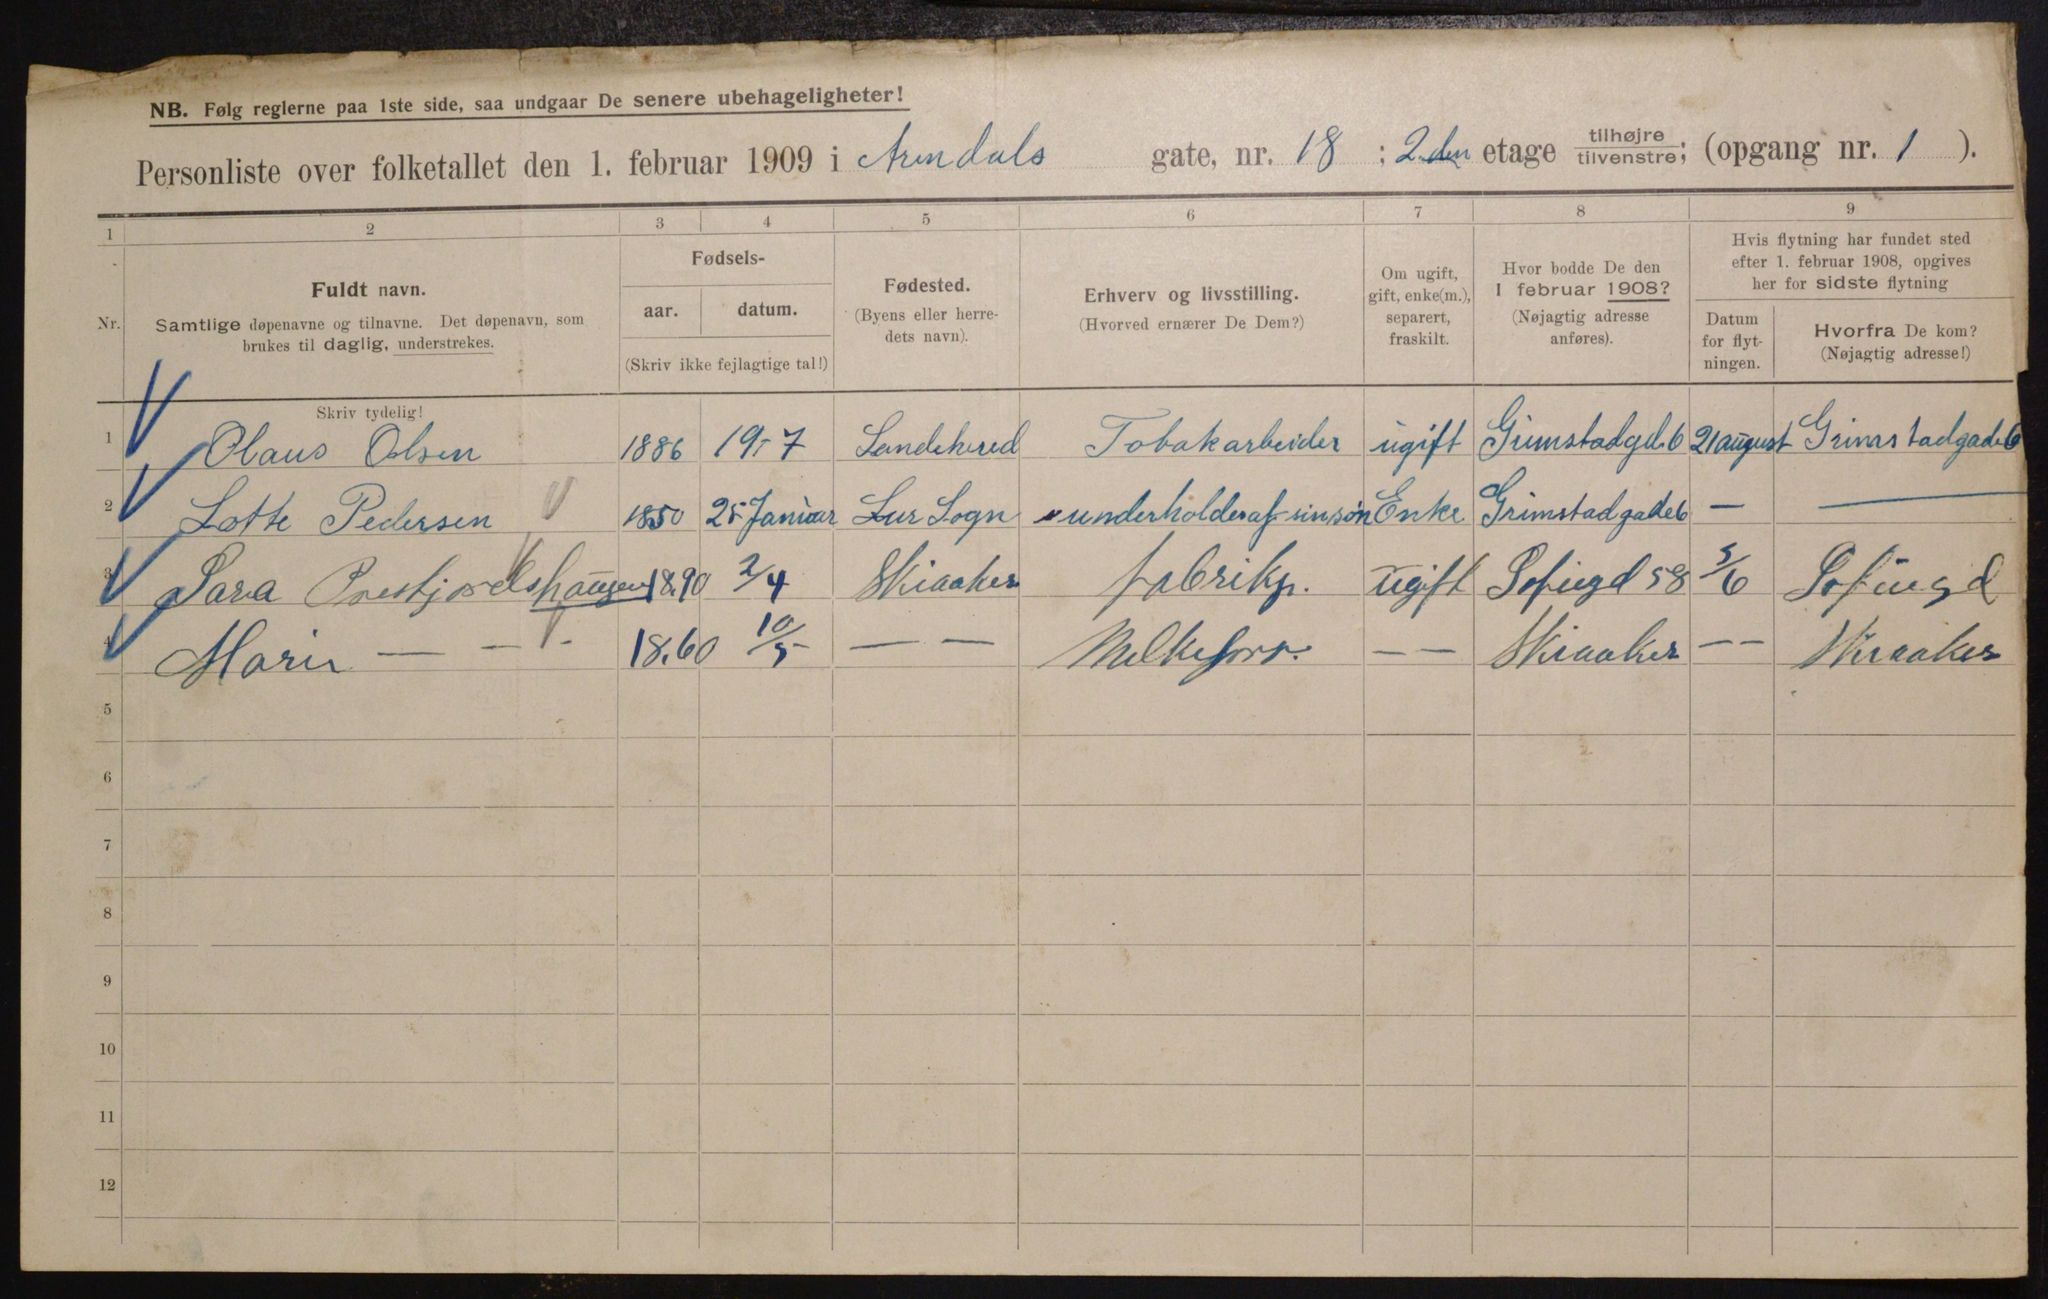 NB. Følg reglerne paa 1ste side, saa undgaar De senere ubehageligheter!
Personliste over folketallet den 1. februar 1909 i Arendals gate, nr. 18 ; 2den etage tilhøjre/tilvenstre; (opgang nr. 1 ).
1 2 3 4 5 6 7 8 9
Nr.
Fuldt navn.
Samtlige døpenavne og tilnavne. Det døpenavn, som
brukes til daglig, understrekes.
Skriv tydelig!
Fødsels-
aar. datum.
(Skriv ikke fejlagtige tal!)
Fødested.
(Byens eller herre-
dets navn).
Erhverv og livsstilling.
(Hvorved ernærer De Dem?)
Om ugift,
gift, enke(m.),
separert,
fraskilt.
Hvor bodde De den
1 februar 1908?
(Nøjagtig adresse
anføres).
Hvis flytning har fundet sted
efter 1. februar 1908, opgives
her for sidste flytning
Datum
for flyt-
ningen.
Hvorfra De kom?
(Nøjagtig adresse!)
1 Olaus Olsen 1886 19-7 Sandehered Tobakarbeider ugift Grimstadgd. 6 21 august Grimstadgade 6
2 Lotte Pedersen 1850 25 Januar Lur Sogn underholdes af sin søn Enke Grimstadgade 6 — —
3 Sara 1890 2/4 Skiaaker fabrikp. ugift Sofiegd 58 5/6 Sofiegd
4 Marie — — - 18.60 10/5 — — — — Skiaaker — — Skiaaker
5
6
7
8
9
10
11
12